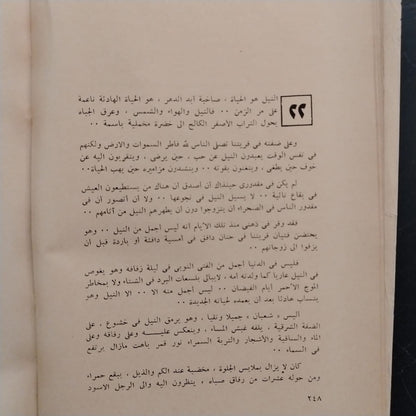 ٢٢
النيل هو الحياة ، صاخبة أبد الدهر ، هو الحياة الهادئة ناعمة
على مر الزمن .. فالنيل والهواء والشمس ، وعرق الجباه
يحول التراب الأصفر الكالح الى خضرة مخملية باسمة ..
وعلى ضفته في قريتنا تصلى الناس لله فاطر السموات والارض ولكنهم
في نفس الوقت يعبدون النيل عن حب ، حين يرضى ، ويتقربون اليه عن
خوف حين يطغى ، ويتغنون بقوته .. وينشدون مزامير حين يهب الحياة ..
لم يكن في مقدورى حينذاك أن أصدق ان هناك من يستطيعون العيش
في بقاع نائية .. لا يسيل النيل في نجوعها .. ولا أن أتصور أن في
مقدور الناس في الصحراء أن يتزوجوا دون أن يطهرهم النيل من آثامهم ..
فقد وقر في ذهنى منذ تلك الايام أنه ليس أجمل من النيل .. وهو
يحتضن فتيان قريتنا في حنان دافق في أمسية دافئة أو باردة قبل أن
يزفوا الى زوجاتهم ..
فليس في الدنيا أجمل من الفتى النوبى في ليلة زفافه وهو يغوص
في النيل عاريا كما ولدته أمه ، لايبالى بلسعات البرد في الشتاء ولا بمخاطر
الموج الأحمر أيام الفيضان .. ليس أجمل منه الا .. الا النيل وهو
ينساب عائدا بعد أن عمده لحياته الجديدة ..
اليس « شعبان » جميلا ونقيا ، وهو يرمق النيل في خشوع ، على
الضفة الشرقية ، يلفه غبش المساء ، وينعكس عليه وعلى رفاقه وعلى
الماء والساقية والأشجار والتربة السمراء نور قمر باهت مازال يرتفع
في السماء ..
كان لا يزال بملابس الجلوة ، مخضبة عند الكم والذيل ، ببقع حمراء
ومن حوله عشرات من رفاق صباه ، ينظرون اليه والى الرجل الاسود
٢٤٨